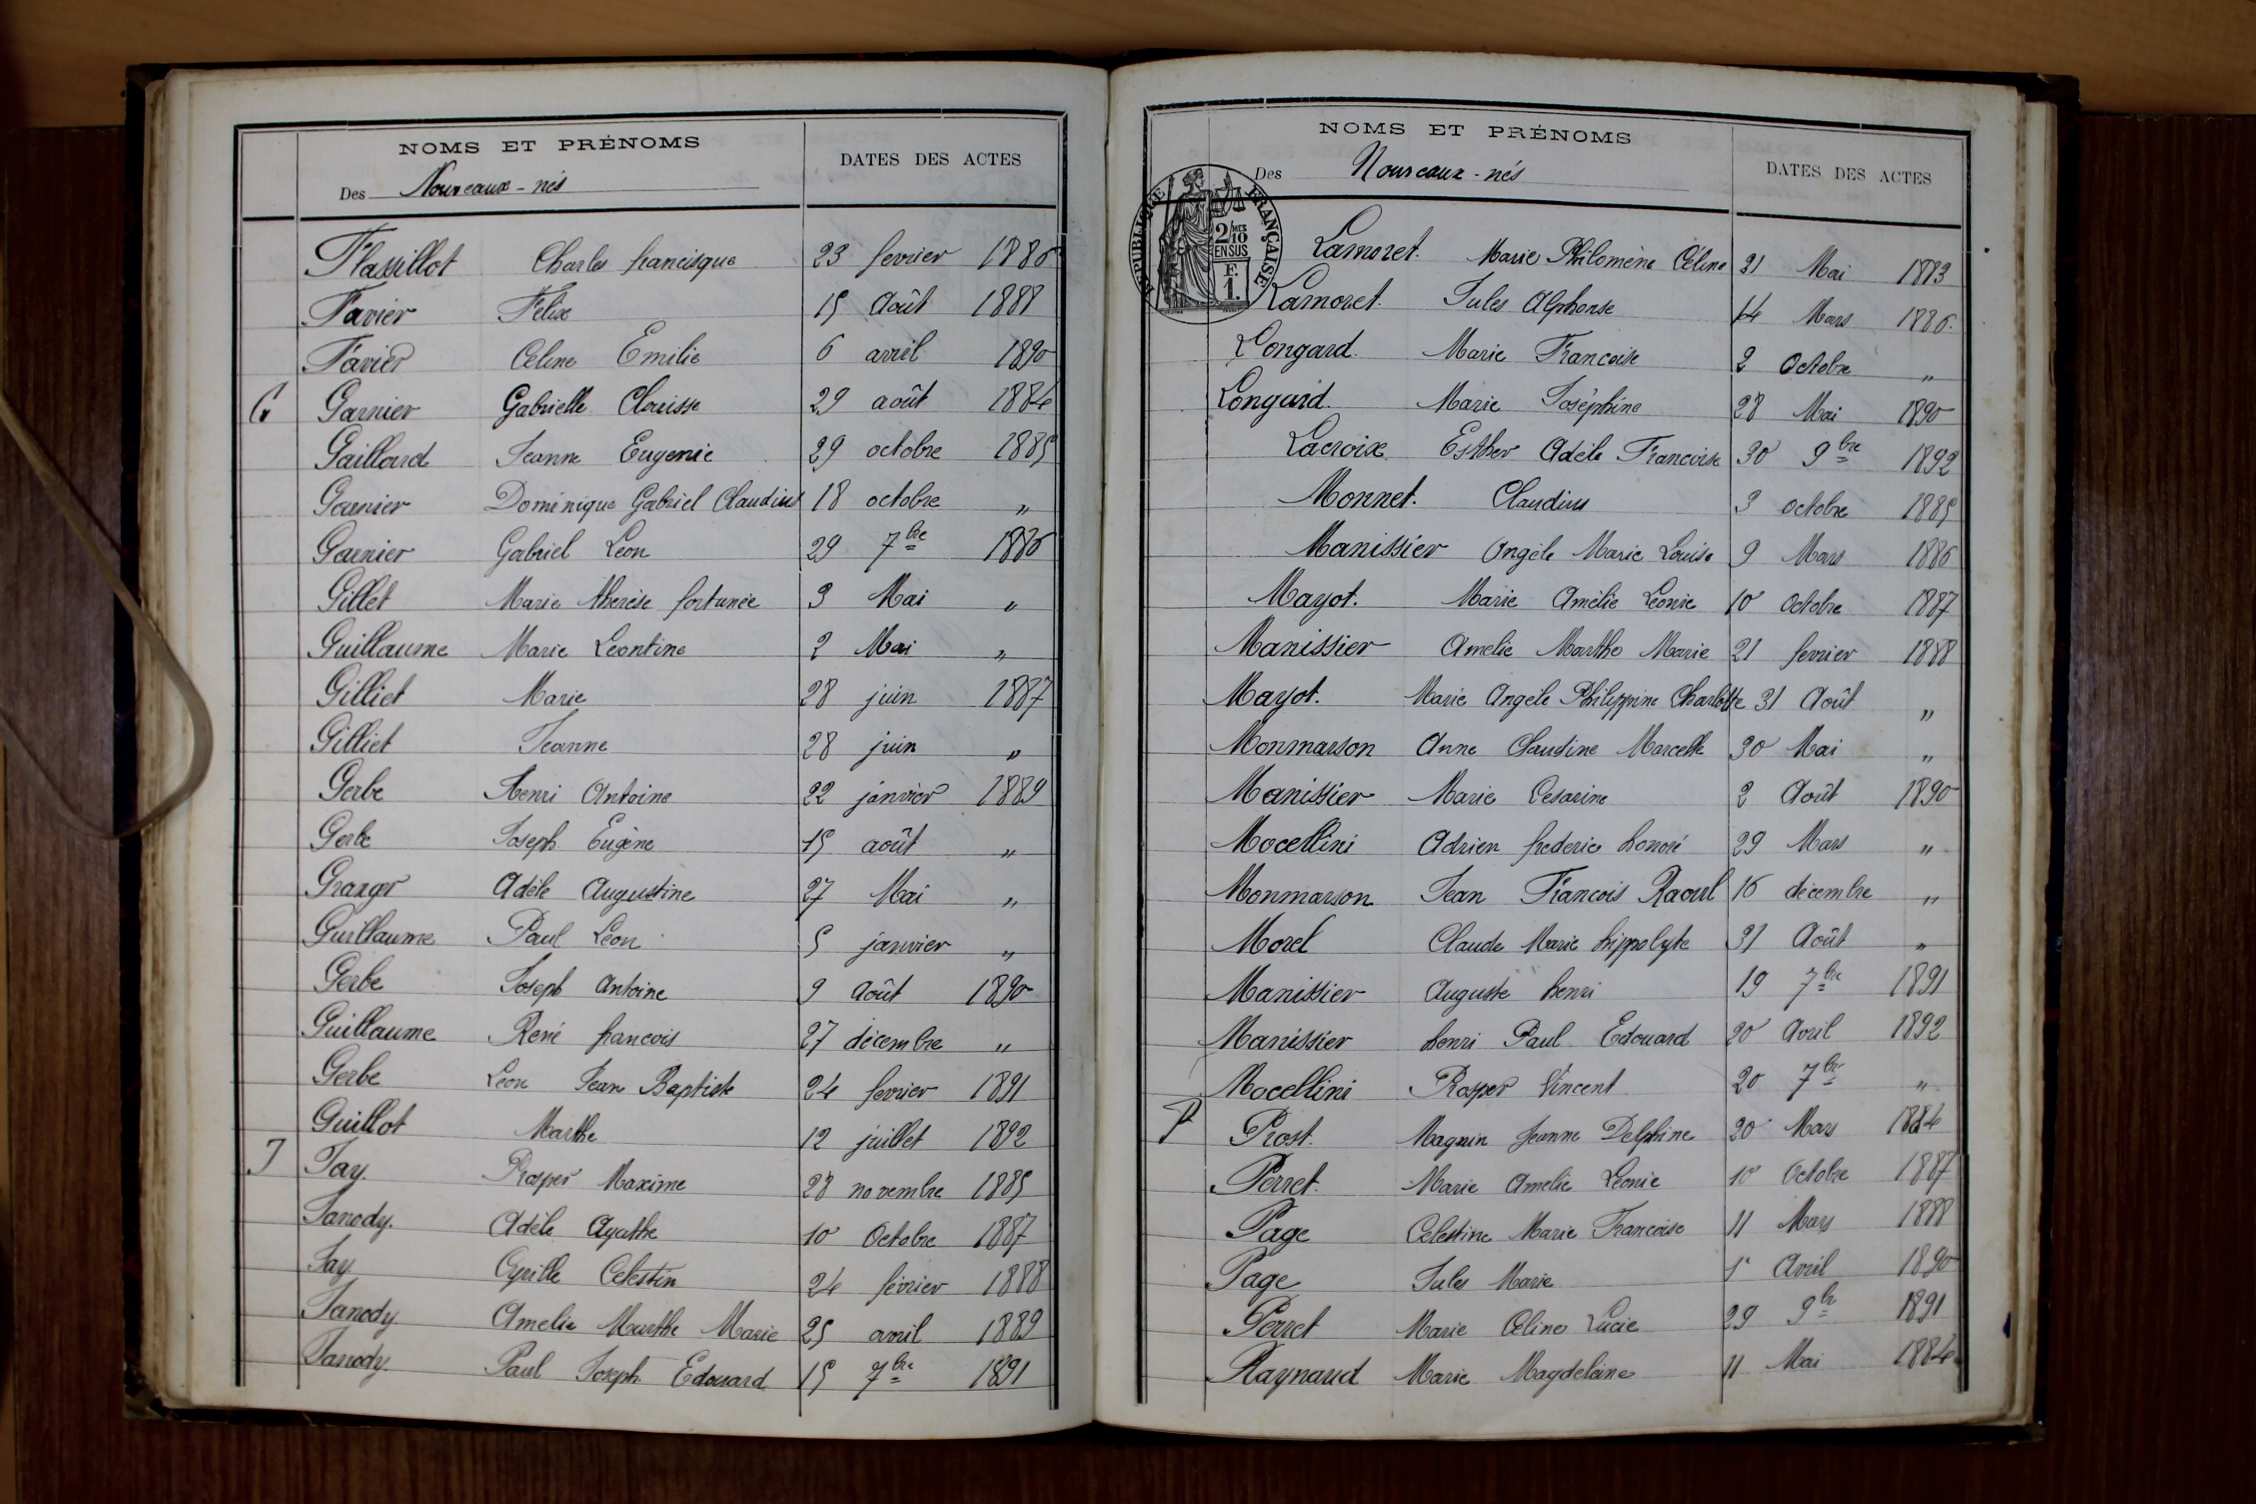 NOMS ET PRÉNOMS
Des Nouveaux-nés
DATES DES ACTES
Flassillot Charles francisque 23 fevrier 1886
Favier Félix 15 Août 1888
Favier Céline Emilie 6 avril 1890
G Garnier Gabrielle Clarisse 29 août 1884
Gaillard Jeanne Eugenie 29 octobre 1885
Garnier Dominique Gabriel Claudius 18 octobre "
Garnier Gabriel Léon 29 7bre 1886
Gillet Marie therèse fortunée 3 Mai "
Guillaume Marie Léontine 2 Mai "
Gilliet Marie 28 juin 1887
Gilliet Jeanne 28 juin "
Gerbe Henri Antoine 22 janvier 1889
Gerbe Joseph Eugène 15 août "
Granger Adèle Augustine 27 Mai "
Guillaume Paul Léon 5 janvier "
Gerbe Joseph Antoine 9 Août 1890
Guillaume René francois 27 décembre "
Gerbe Léon Jean Baptiste 24 fevrier 1891
Guillot Marthe 12 juillet 1892
J Jay. Prosper Maxime 28 novembre 1885
Janody. Adèle Agathe 10 Octobre 1887
Jay Cyrille Celestin 24 février 1888
Janody Amelie Marthe Marie 25 avril 1889
Janody. Paul Joseph Edouard 15 7bre 1891
NOMS ET PRÉNOMS
Des Nouveaux-nés
DATES DES ACTES
RÉPUBLIQUE FRANÇAISE
2/10
EN SUS
F.
1.
Lamoret. Marie Philomène Céline 31 Mai 1883
Lamoret. Jules Alphonse 14 Mars 1886.
Longard. Marie Francoise 2 Octobre "
Longard. Marie Joséphine 28 Mai 1890
Lacroix Esther Adèle Francoise 30 9bre 1892
Monnet. Claudius 3 octobre 1885
Manissier Angèle Marie Louise 9 Mars 1886
Mayot. Marie Amélie Léonie 10 Octobre 1887
Manissier Amelie Marthe Marie 21 fevrier 1888
Mayot. Marie Angele Philippine Charlotte 31 Août "
Monmarson Anne Claudine Marcelle 30 Mai "
Manissier Marie Cesarine 2 Août 1890
Mocellini Adrien frederic honoré 29 Mars "
Monmarson Jean Francois Raoul 16 décembre "
Morel Claude Marie hippolyte 31 Août "
Manissier Auguste henri 19 7bre 1891
Manissier henri Paul Edouard 20 Avril 1892
Mocellini Prosper Vincent 20 7bre "
P Prost. Magnin Jeanne Delphine 20 Mars 1884
Perret. Marie Amelie Léonie 10 Octobre 1887
Page Celestine Marie Francoise 11 Mars 1888
Page Jules Marie 1r Avril 1890
Perret Marie Céline Lucie 29 9br 1891
Raynaud Marie Magdelaine 11 Mai 1884